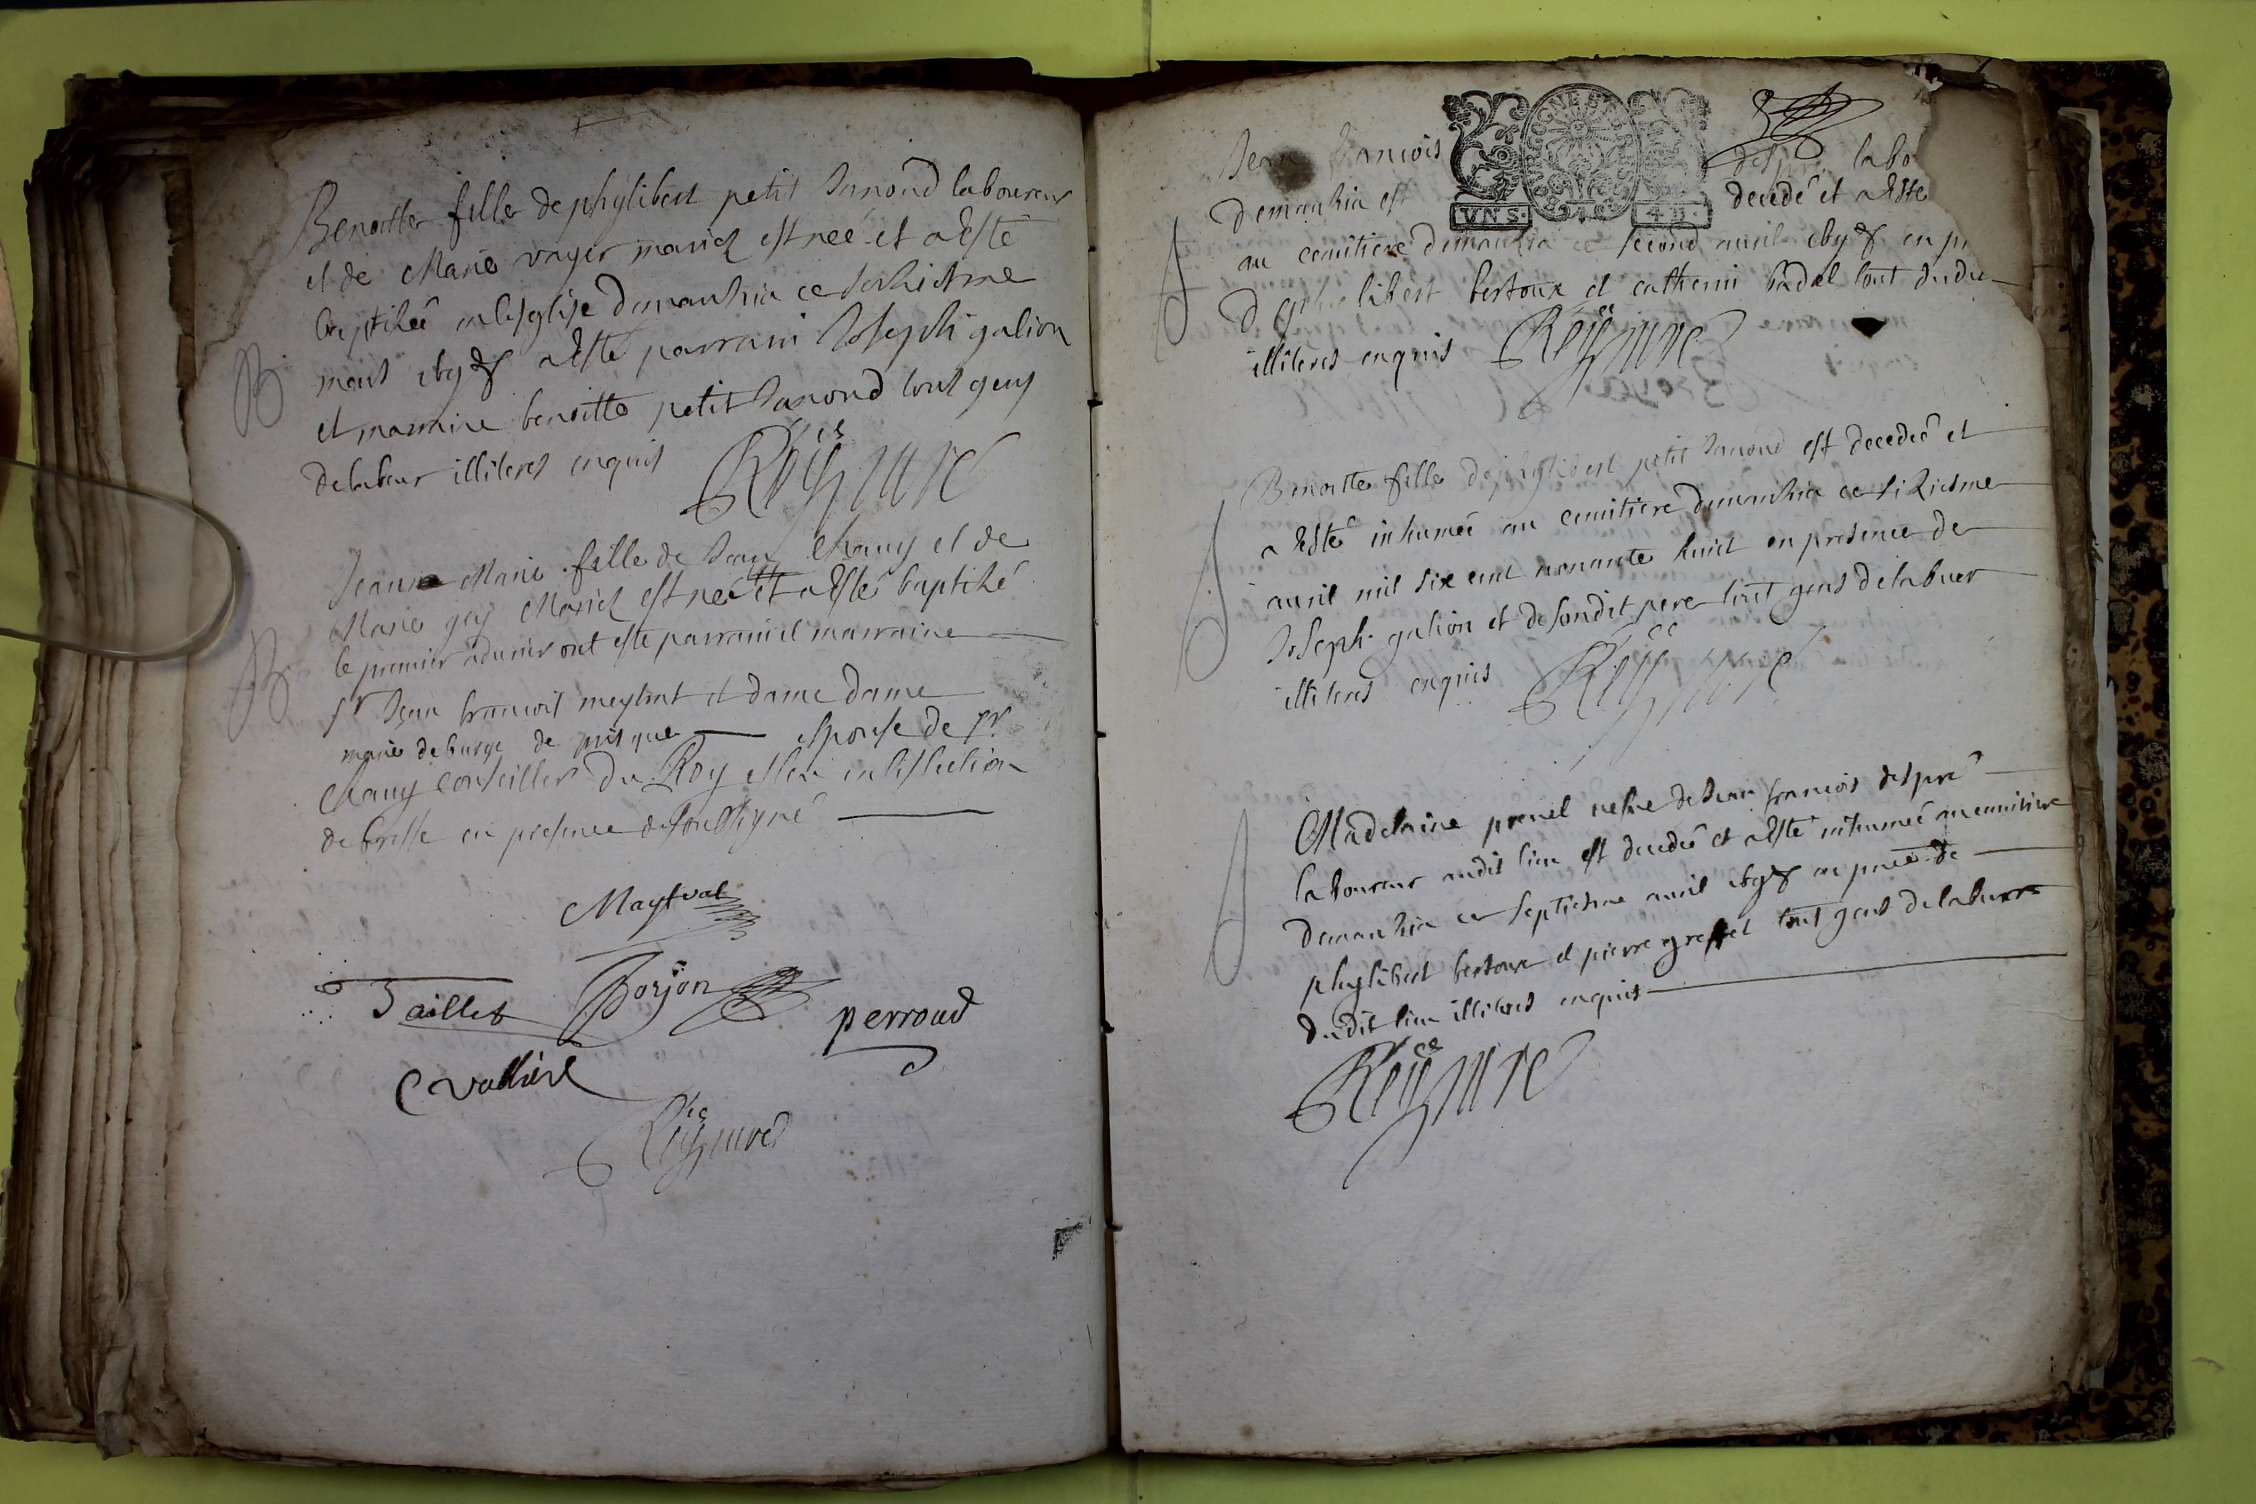 Benoitte fille de phylibert petit Junond laboureur
et de Marie vayer mariez est née et a Esté
baptizée en l'esglise demanziat ce
mars et a Esté parrain Joseph galion
et marraine benoitte petit Junond tout gens
delabeur illiteres enquis
Reÿ curé
B
Jeanne Marie fille de Jean Chany et de
Marie gay Mariez est née et a esté baptizé
le premier ont esté parrain et marraine
Sr Jean francois et dame dame
marie de espouse de Sr
Chany Conseiller du Roy esleu en leslection
de bresse en presence
B
Maystral
Taillet
Borjon
perroud
C Vallière
Reÿ curé
VNS. 4 D.
Jean francois despré labo
demanzia est decedé et a Esté
au cemitiere demanzia ce second auril en pr
De philibert bertoux et catherin badel tout dudi
illiteres enquis Reÿ curé
Benoitte fille de phylibert petit Junond est decedée et
a Esté inhumée au cemitiere demanzia ce sixiesme
auril mil six cent nonante huict en presence de
Joseph galion et de sondit pere tout gens delabuer
illiteres enquis Reÿ curé
Madelaine prevel vefve de Jean francois despré
laboureur audit lieu est decedée et a Esté inhumée au cemitiere
demanzia ce septiesme auril en pnce de
phylibert bertoux et pierre tout gens delabuer
dudit lieu illiteres enquis
Reÿ curé